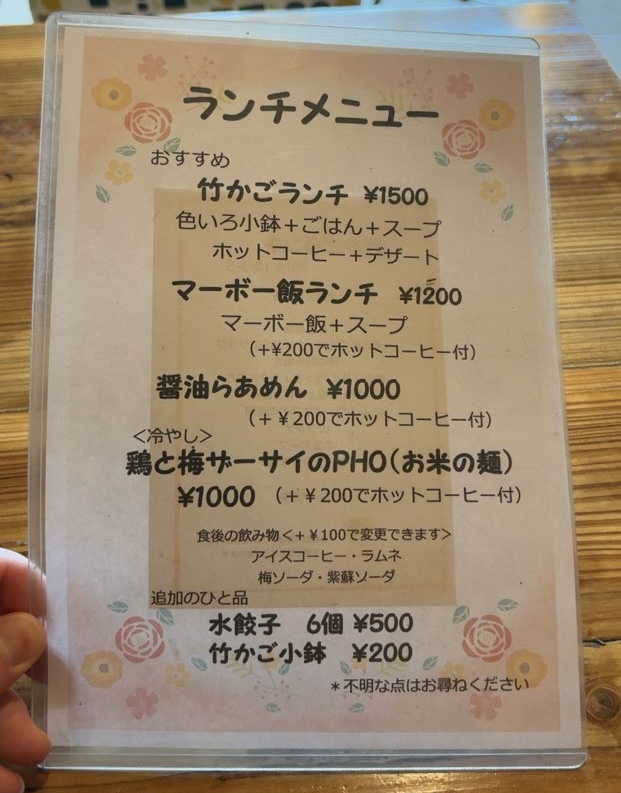 ランチメニュー
おすすめ
竹かごランチ ¥1500
色いろ小鉢+ごはん+スープ
ホットコーヒー+デザート
マーボー飯ランチ ¥1200
マーボー飯+スープ
(+¥200でホットコーヒー付)
醤油らあめん ¥1000
(+¥200でホットコーヒー付)
<冷やし>
鶏と梅ザーサイのPHO(お米の麺)
¥1000 (+¥200でホットコーヒー付)
食後の飲み物<+¥100で変更できます>
アイスコーヒー・ラムネ
梅ソーダ・紫蘇ソーダ
追加のひと品
水餃子 6個 ¥500
竹かご小鉢 ¥200
*不明な点はお尋ねください